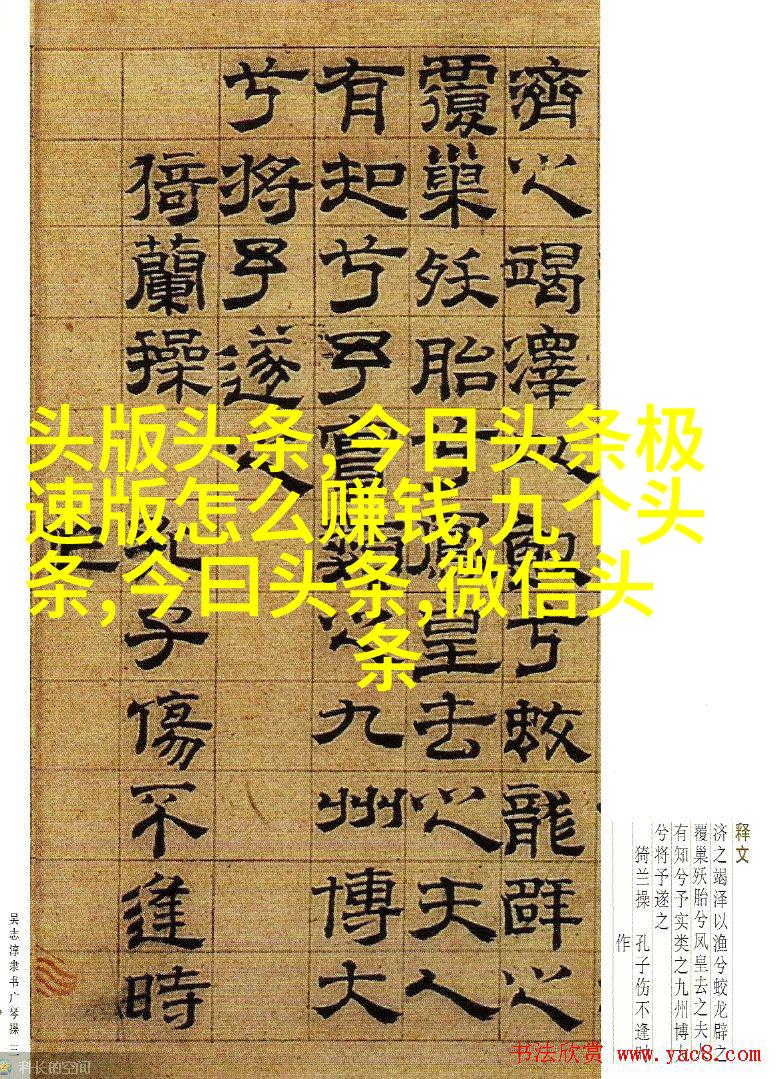 濟之竭澤以漁兮蛟龍辟之
覆巢殀胎兮鳳皇去之夫人
有知兮予類之九州博大
兮將予遂之
猗蘭操 孔子傷不逢時
作
头版头条,今日头条极
速版怎么赚钱,九个头
条,今曰头条,微信头
条
释文
济之竭泽以渔兮蛟龙辟之
覆巢殀胎兮凤皇去之夫
有知兮予实类之九州博
兮将予遂之
猗兰操 孔子伤不逢时
作
吴志淳隶书广琴操 三
科长的空间
书法欣赏 www.yac8.com